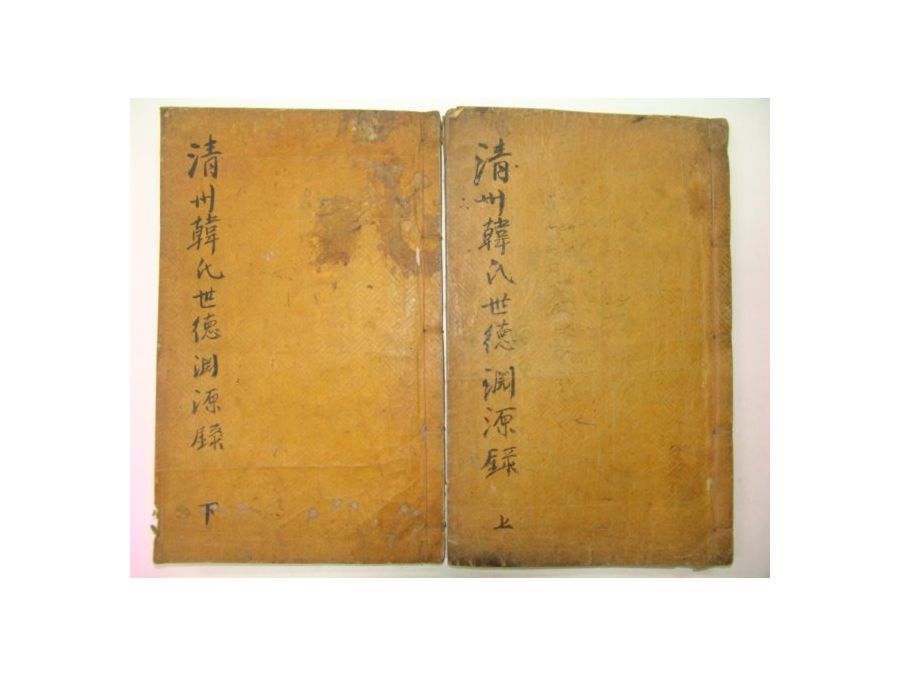 清州韓氏世德淵源錄
上
清州韓氏世德渊源錄
下